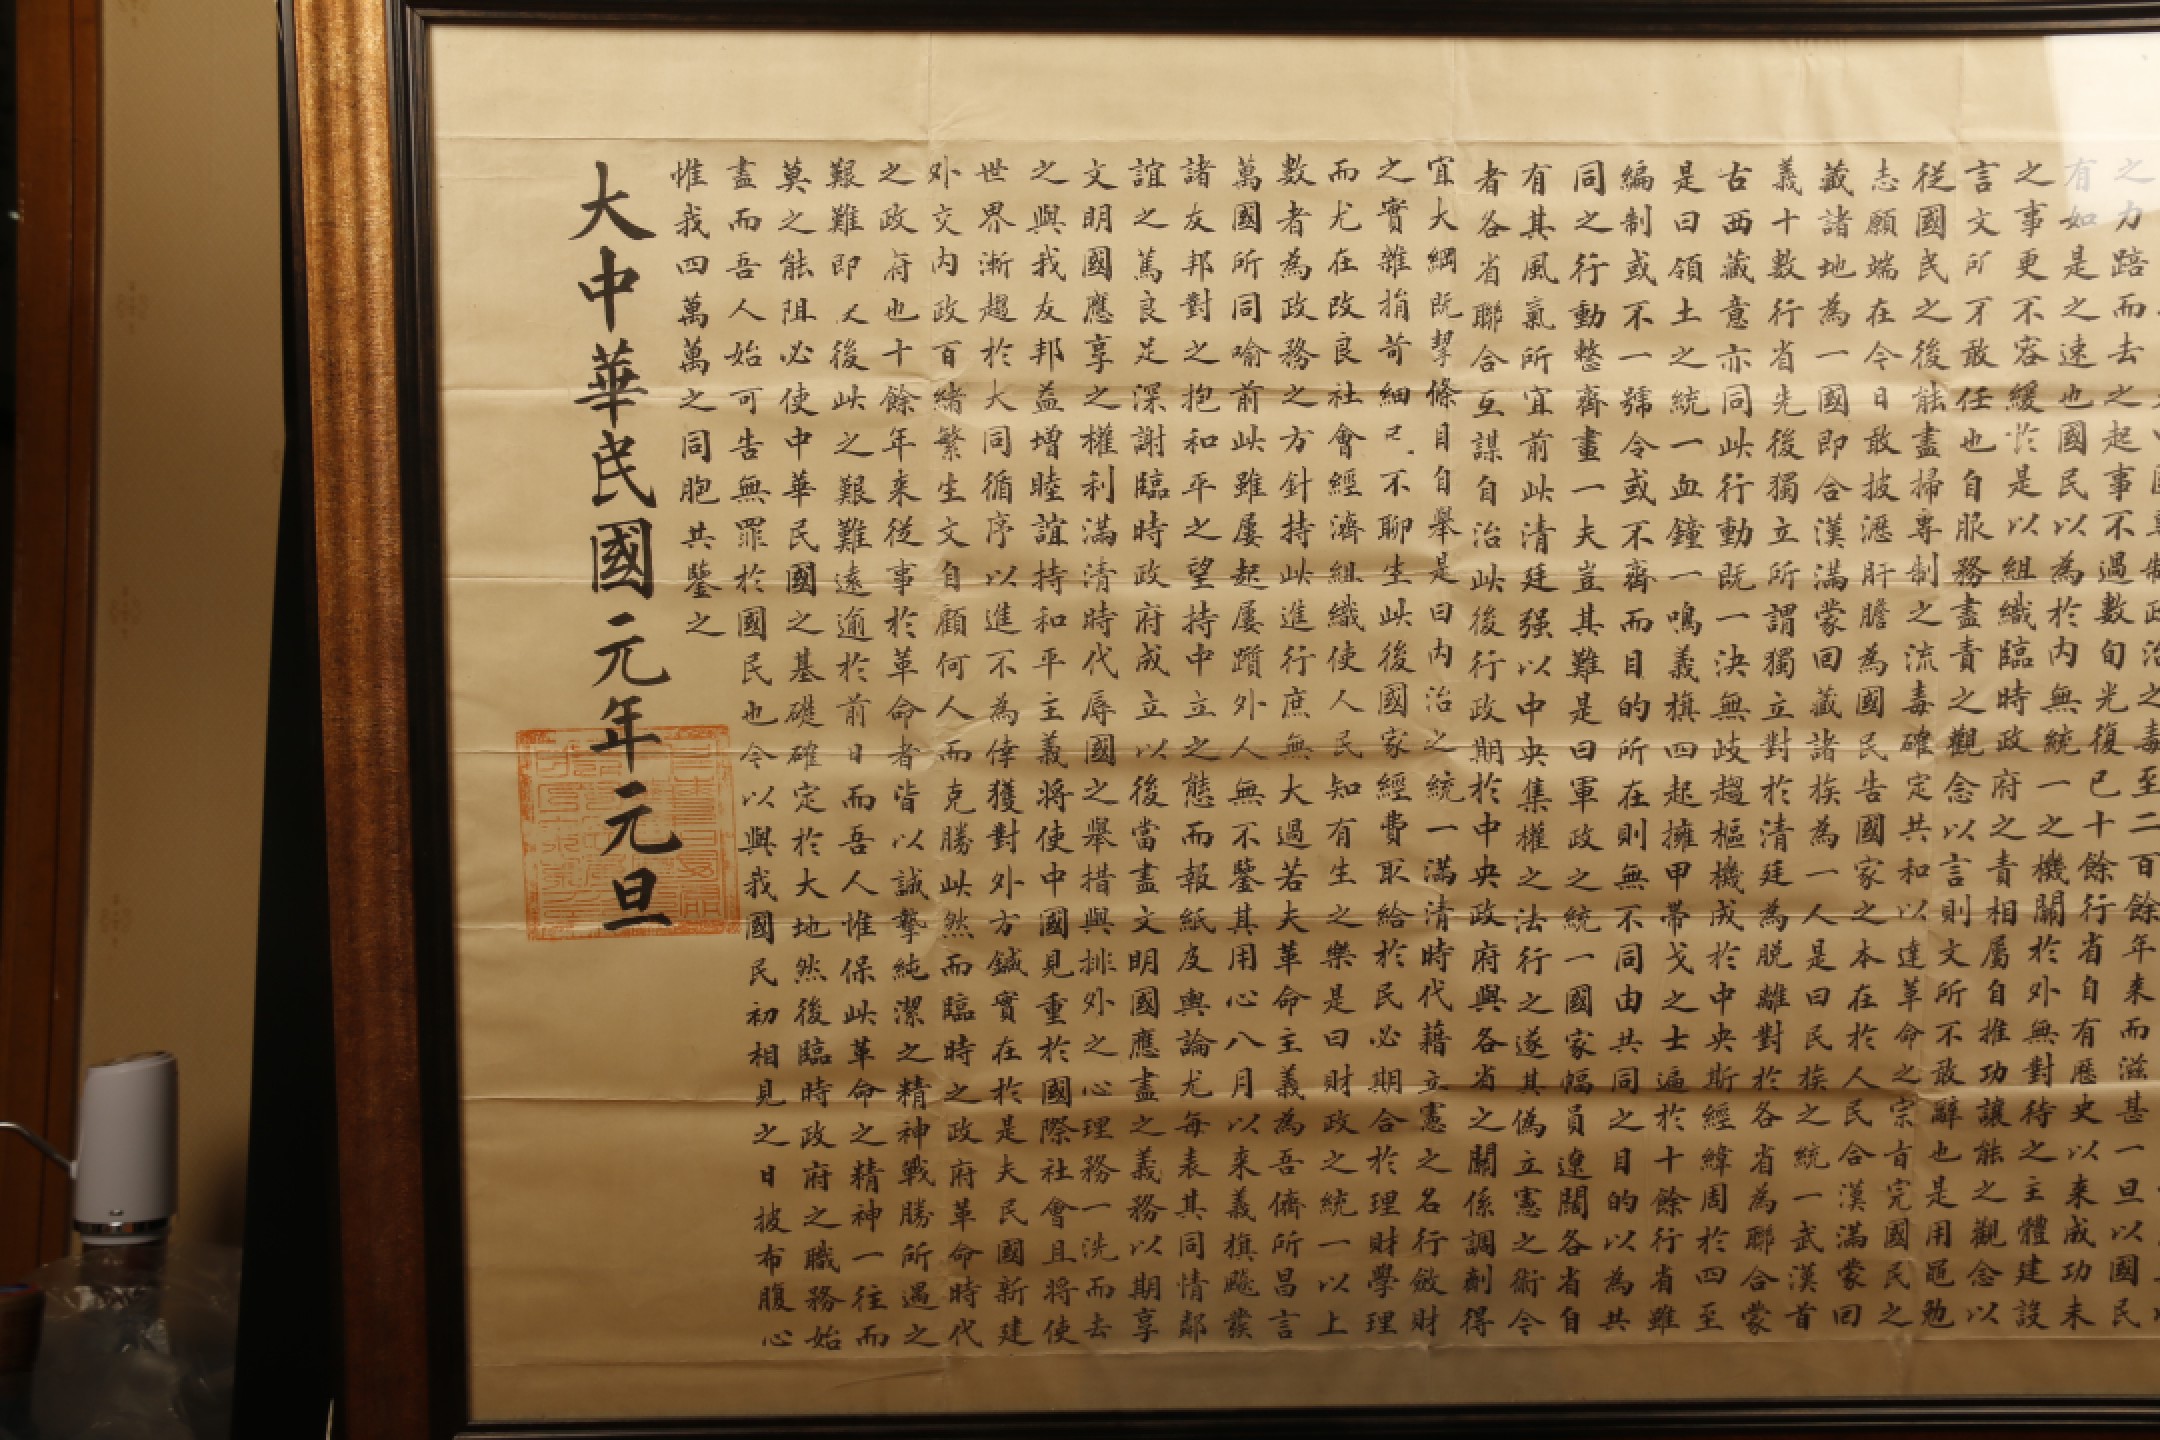 制政治之毒至二百餘年来而滋甚一旦以國民
之力踣而去之起事不過數旬光復已十餘行省自有歷史以来成功未
有如是之速也國民以為於內無統一之機關於外無對待之主體建設
之事更不容緩於是以組織臨時政府之責相屬自推功讓能之觀念以
言文所不敢任也自服務盡責之觀念以言則文所不敢辭也是用黽勉
從國民之後能盡掃專制之流毒確定共和以達革命之宗旨完國民之
志願端在今日敢披瀝肝膽為國民告國家之本在於人民合漢滿蒙回
藏諸地為一國即合漢滿蒙回藏諸族為一人是曰民族之統一武漢首
義十數行省先後獨立所謂獨立對於清廷為脱離對於各省為聯合蒙
古西藏意亦同此行動既一決無歧趨樞機成於中央斯經緯周於四至
是曰領土之統一血鐘一鳴義旗四起擁甲帶戈之士遍於十餘行省雖
編制或不一號令或不齊而目的所在則無不同由共同之目的以為共
同之行動整齊畫一夫豈其難是曰軍政之統一國家幅員遼闊各省自
有其風氣所宜前此清廷强以中央集權之法行之遂其偽立憲之術今
者各省聯合互謀自治此後行政期於中央政府與各省之關係調劑得
宜大綱既挈條目自舉是曰內治之統一滿清時代藉立憲之名行斂財
之實雜捐苛細已不聊生此後國家經費取給於民必期合於理財學理
而尤在改良社會經濟組織使人民知有生之樂是曰財政之統一以上
數者為政務之方針持此進行庶無大過若夫革命主義為吾儕所昌言
萬國所同喻前此雖屢起屢躓外人無不鑒其用心八月以来義旗飈發
諸友邦對之抱和平之望持中立之態而報紙及輿論尤每表其同情鄰
誼之篤良足深謝臨時政府成立以後當盡文明國應盡之義務以期享
文明國應享之權利滿清時代辱國之舉措與排外之心理務一洗而去
之與我友邦益增睦誼持和平主義將使中國見重於國際社會且將使
世界漸趨於大同循序以進不為倖獲對外方鍼實在於是夫民國新建
外交內政百緒繁生文自顧何人而克勝此然而臨時之政府革命時代
之政府也十餘年来從事於革命者皆以誠摯純潔之精神戰勝所遇之
艱難即使後此之艱難遠逾於前日而吾人惟保此革命之精神一往而
莫之能阻必使中華民國之基礎確定於大地然後臨時政府之職務始
盡而吾人始可告無罪於國民也今以與我國民初相見之日披布腹心
惟我四萬萬之同胞共鑒之
大中華民國元年元旦